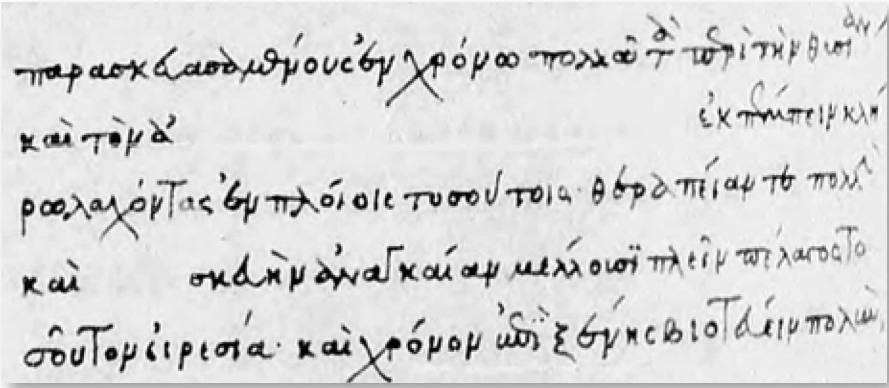 παρασκευασαμένους ἐν χρόνω πολλῶ τὰ περὶ τὴν θυσίαν
καὶ τὸν ἀ ἐκπέμπειν κλή
ρω λαχόντας ἐν πλοίοις τοσούτοις· θεραπείαν τε πολλὴν
καὶ σκευὴν ἀναγκαίαν μέλλουσι πλεῖν πέλαγος το
σοῦτον εἰρεσία· καὶ χρόνον ἐπὶ ξένης βιοτεύειν πολὺν